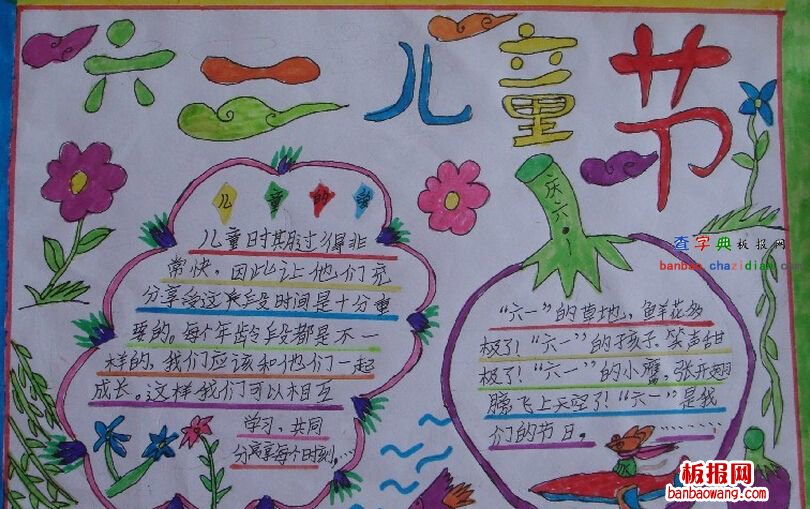 六一儿童节
儿童的
儿童时期过得非
常快，因此让他们充
分享受这美段时间是十分重
要的。每个年龄段都是不一
样的，我们应该和他们一起
成长。这样我们可以相互
学习，共同
分享每个时刻……
庆六·一
“六一”的草地，鲜花多
极了！“六一”的孩子，笑声甜
极了！“六一”的小鹰，张开翅
膀飞上天空了！“六一”是我
们的节日。………
查字典板报网
banbao.chazidian.com
板报网
banbaowang.com